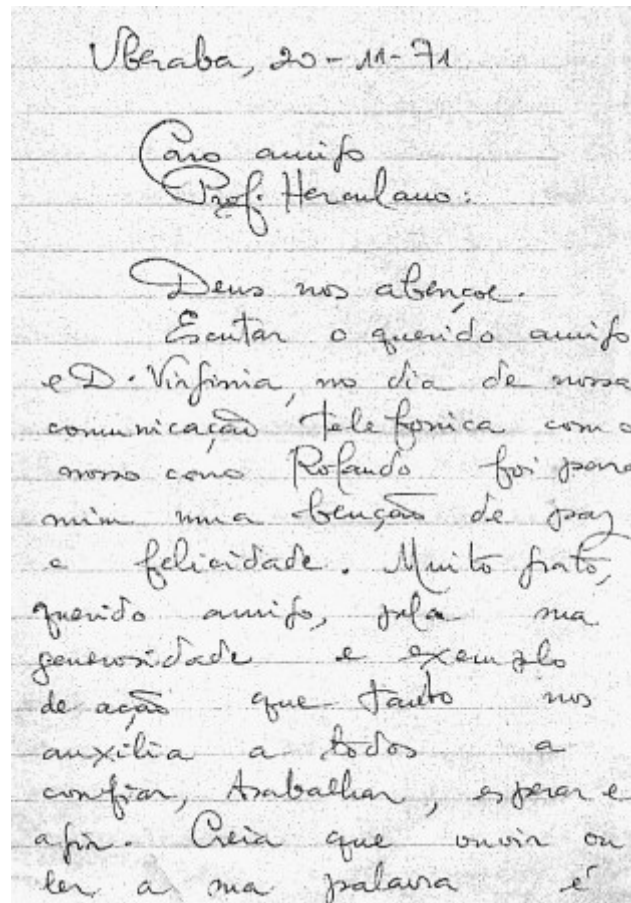 Uberaba, 20-11-71
Caro amigo
Prof. Herculano:
Deus nos abençoe.
Escutar o querido amigo
e D. Virginia, no dia de nossa
comunicação telefonica com o
nosso caro Rolando foi para
mim uma benção de paz
e felicidade. Muito grato,
querido amigo, pela sua
generosidade e exemplo
de ação que tanto nos
auxilia a todos a
confiar, trabalhar, esperar e
agir. Creia que ouvir ou
ler a sua palavra é